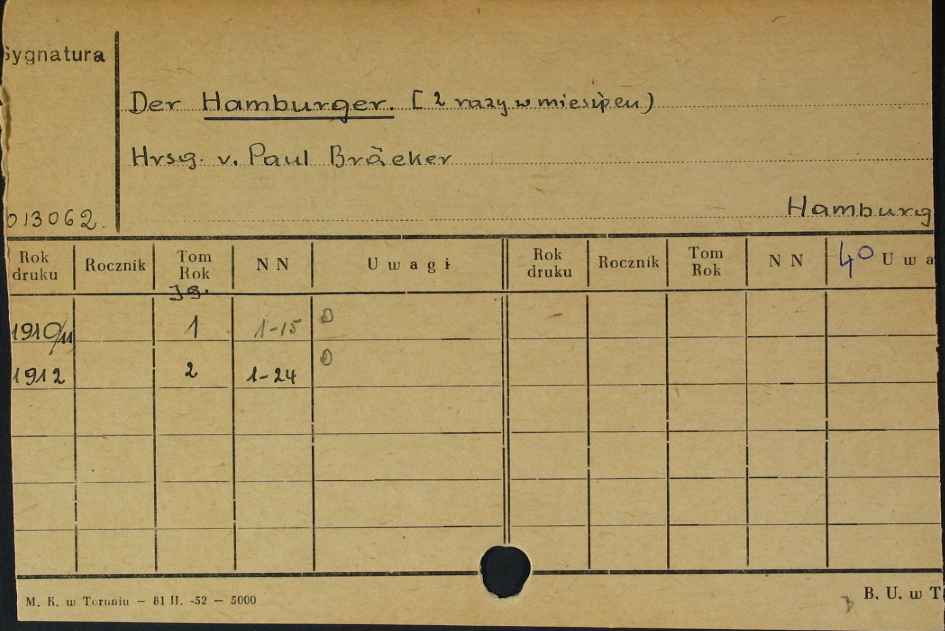 Sygnatura
Der Hamburger. [2 razy w miesiącu)
Hrsg. v. Paul Bräcker
013062.
Hamburg
Rok druku Rocznik Tom Rok NN Uwagi Rok druku Rocznik Tom Rok NN 4° Uwa
Jg.
1910/11 1 1-15
1912 2 1-24
M. K. w Toruniu — 81 II. -52 — 5000
B. U. w T